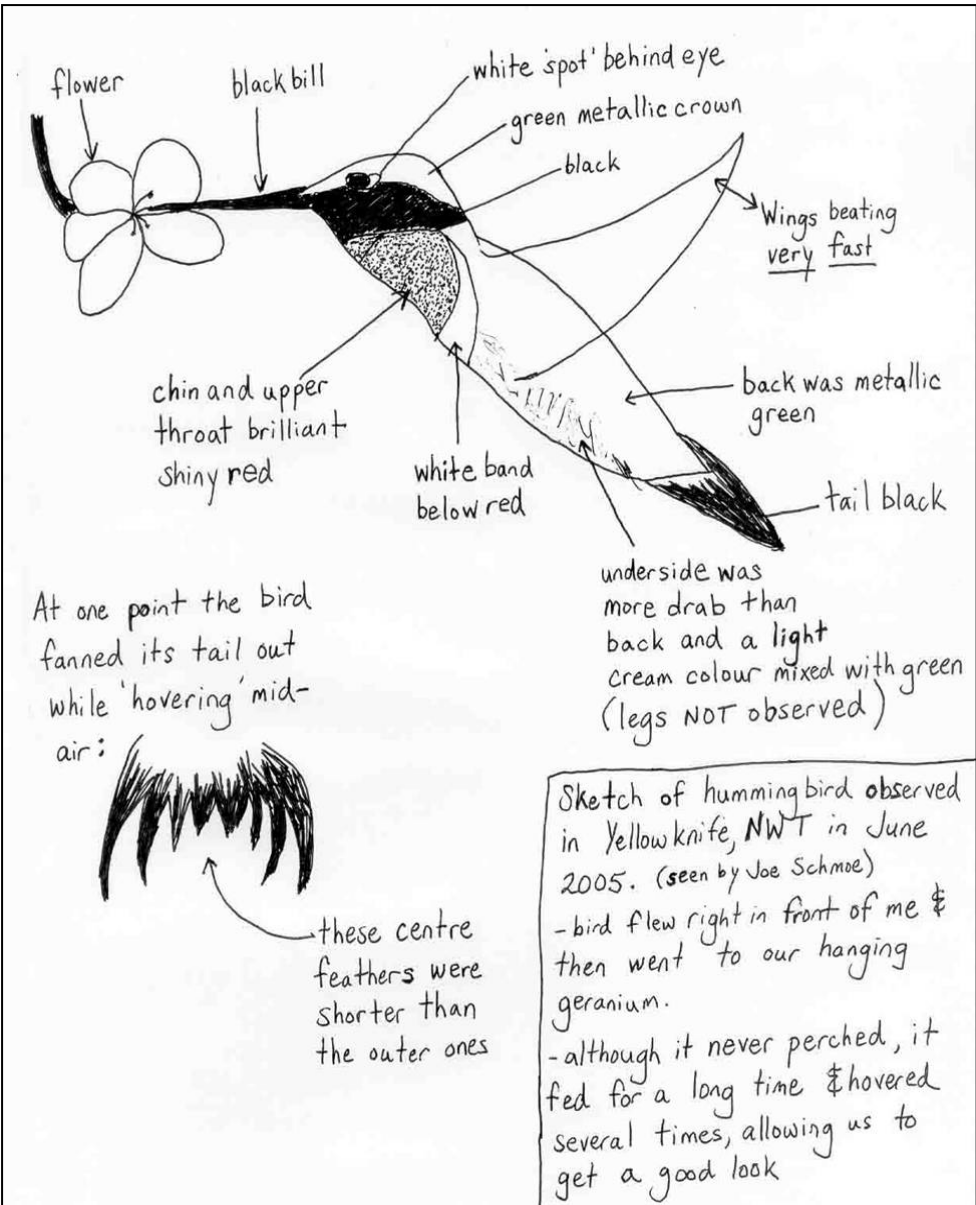 flower
black bill
white 'spot' behind eye
green metallic crown
black
Wings beating
very fast
chin and upper
throat brilliant
shiny red
white band
below red
back was metallic
green
tail black
underside was
more drab than
back and a light
cream colour mixed with green
(legs NOT observed)
At one point the bird
fanned its tail out
while 'hovering' mid-
air:
these centre
feathers were
shorter than
the outer ones
Sketch of hummingbird observed
in Yellowknife, NWT in June
2005. (seen by Joe Schmoe)
- bird flew right in front of me &
then went to our hanging
geranium.
- although it never perched, it
fed for a long time & hovered
several times, allowing us to
get a good look